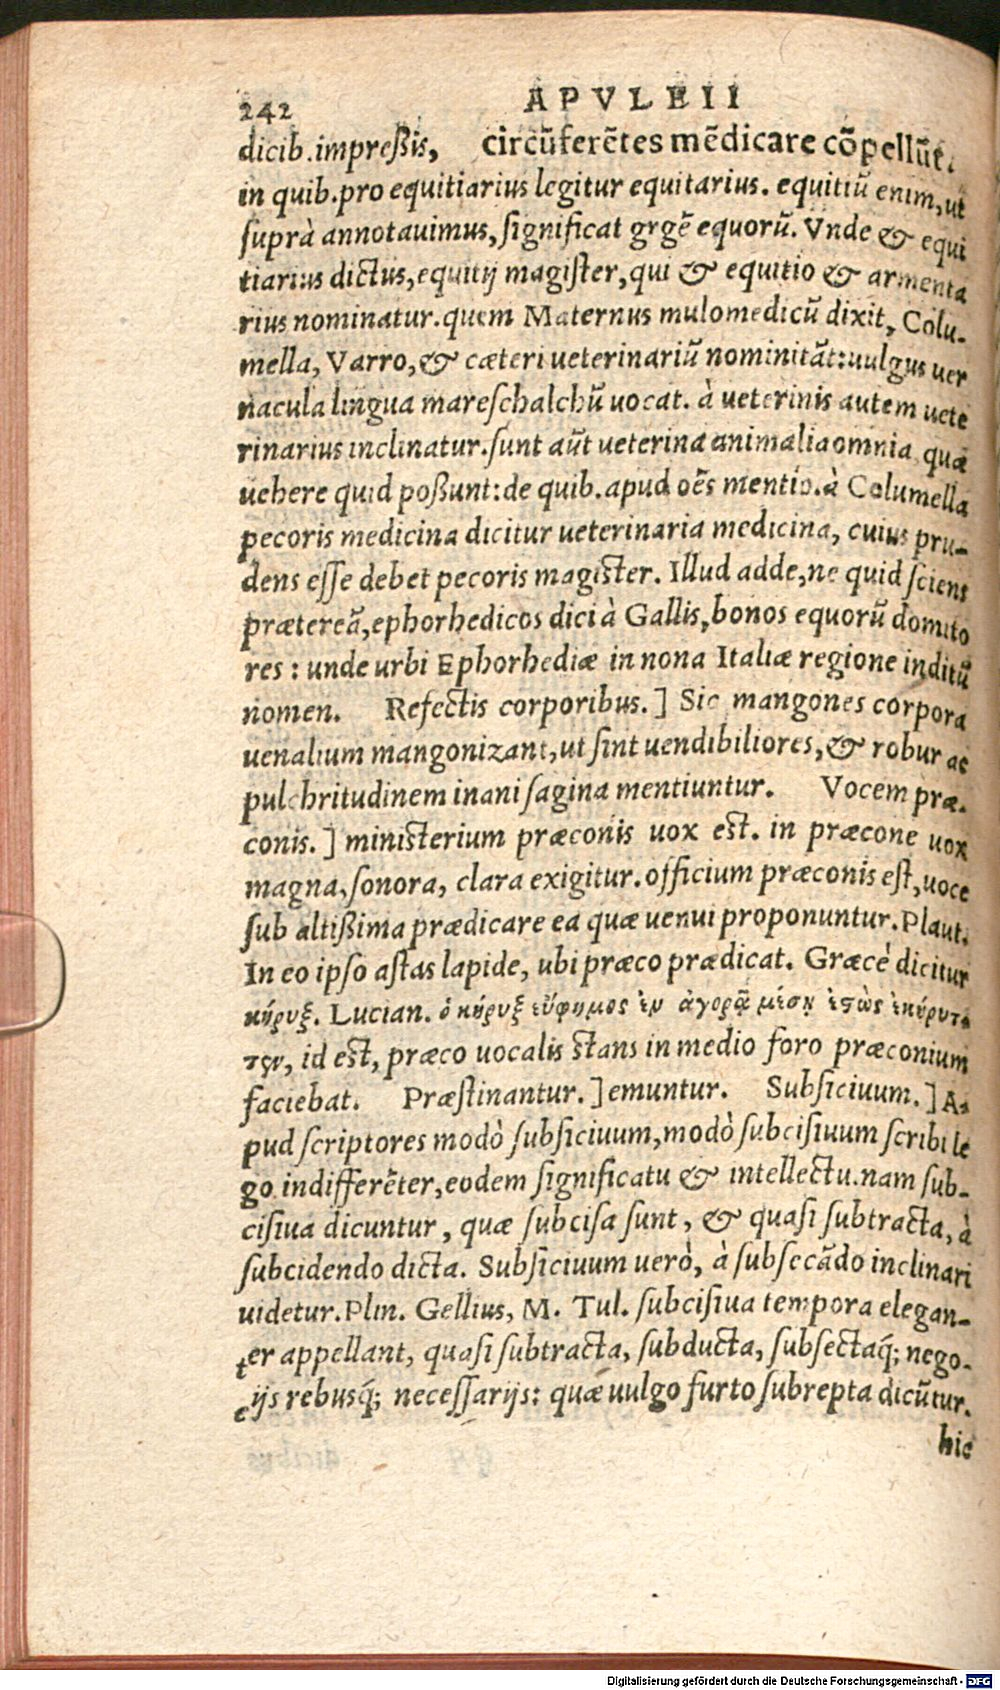 242 APVLEII
dicib.impreßis, circũferẽtes mẽdicare cõpellũt.
in quib.pro equitiarius legitur equitarius. equitiũ enim, ut
suprà annotauimus, significat grgẽ equorũ. Vnde & equi
tiarius dictus, equitij magister, qui & equitio & armenta
rius nominatur. quem Maternus mulomedicũ dixit, Colu-
mella, Varro, & cæteri ueterinariũ nominitãt: uulgus uer
nacula lingua mareschalchũ uocat. à ueterinis autem uete
rinarius inclinatur. sunt aũt ueterina animalia omnia quæ
uehere quid poßunt: de quib. apud oẽs mentio. à Columella
pecoris medicina dicitur ueterinaria medicina, cuius pru-
dens esse debet pecoris magister. Illud adde, ne quid sciens
prætereã, ephorhedicos dici à Gallis, bonos equorũ domito
res : unde urbi Ephorhediæ in nona Italiæ regione inditũ
nomen. Refectis corporibus. ] Sic mangones corpora
uenalium mangonizant, ut sint uendibiliores, & robur ac
pulchritudinem inani sagina mentiuntur. Vocem præ-
conis. ] ministerium præconis uox est. in præcone uox
magna, sonora, clara exigitur. officium præconis est, uoce
sub altißima prædicare ea quæ uenui proponuntur. Plaut.
In eo ipso astas lapide, ubi præco prædicat. Græcè dicitur
κήρυξ. Lucian. ὁ κήρυξ εὔφημος ἐν ἀγορᾷ μέσῃ ἑστὼς ἐκήρυτ-
τεν, id est, præco uocalis stans in medio foro præconium
faciebat. Præstinantur. ] emuntur. Subsiciuum. ] A-
pud scriptores modò subsiciuum, modò subcisiuum scribi le
go indifferẽter, eodem significatu & intellectu. nam sub-
cisiua dicuntur, quæ subcisa sunt, & quasi subtracta, à
subcidendo dicta. Subsiciuum uerò, à subsecãdo inclinari
uidetur. Plin. Gellius, M. Tul. subcisiua tempora elegan-
ter appellant, quasi subtracta, subducta, subsectaq́; nego-
cijs rebusq́; necessarijs: quæ uulgo furto subrepta dicũtur.
hic
Digitalisierung gefördert durch die Deutsche Forschungsgemeinschaft - DFG